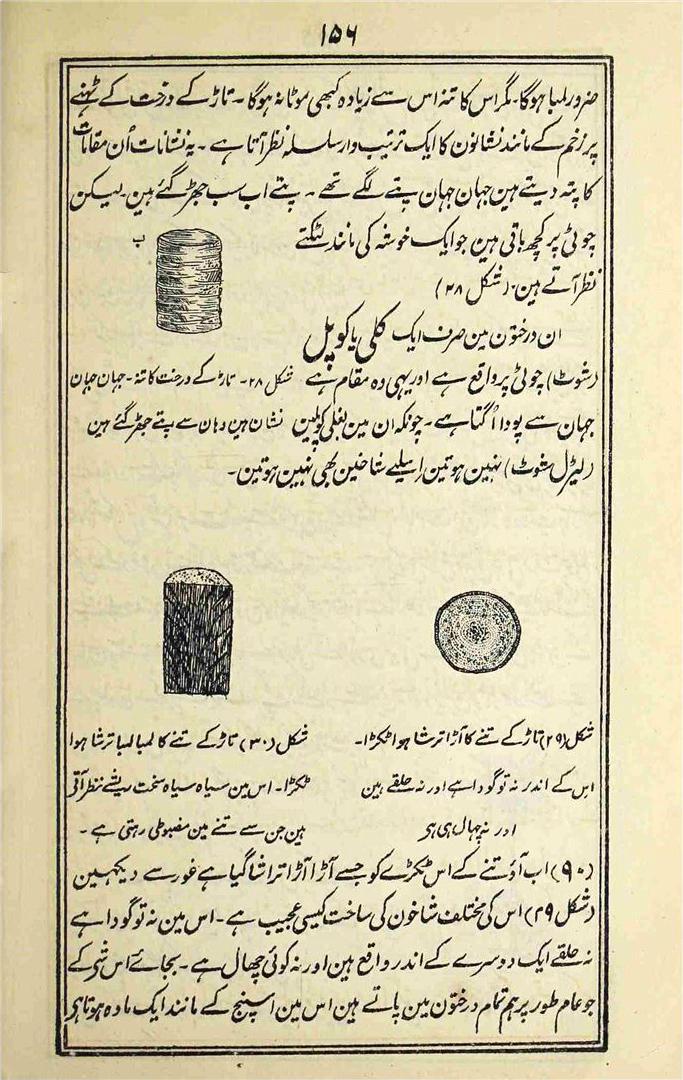 ۱۵۶
ضرور لمبا ہوگا۔ مگر اس کا تنہ اس سے زیادہ کبھی موٹا نہ ہوگا۔ تاڑ کے درخت کے ٹہنے
پر زخم کے مانند نشانون کا ایک ترتیب وار سلسلہ نظر آتا ہے۔ یہ نشانات اُن مقامات
کا پتہ دیتے ہین جہان جہان پتے لگے تھے۔ پتے اب سب جھڑ گئے ہین۔ لیکن
چوٹی پر کچھ باقی ہین جو ایک خوشہ کی مانند لٹکتے
ب
نظر آتے ہین۔ (شکل ۲۸)
ان درختون مین صرف ایک کلی یا کوپل
(شوٹ) چوٹی پر واقع ہے اور یہی وہ مقام ہے
جہان سے پودا اُگتا ہے۔ چونکہ ان مین بغلی کوپلین
شکل ۲۸۔ تاڑ کے درخت کا تنہ۔ جہان جہان
نشان ہین وہان سے پتے جھڑ گئے ہین
(لیٹرل شوٹ) نہین ہوتین اسلیے شاخین بھی نہین ہوتین۔
شکل (۲۹) تاڑ کے تنے کا آڑا ترشا ہوا ٹکڑا۔
اس کے اندر نہ تو گودا ہے اور نہ حلقے ہین
اور نہ چہال ہی ہی
شکل (۳۰) تاڑ کے تنے کا لمبا لمبا ترشا ہوا
ٹکڑا۔ اس مین سیاہ سیاہ سخت ریشے نظر آتے
ہین جن سے تنے مین مضبوطی رہتی ہے۔
(۹۰) اب آؤ تنے کے اس ٹکڑے کو جسے آڑا آڑا تراشا گیا ہے غور سے دیکہین
(شکل ۲۹) اس کی مختلف شاخون کی ساخت کیسی عجیب ہے۔ اس مین نہ تو گودا ہے
نہ حلقے ایک دوسرے کے اندر واقع ہین اور نہ کوئی چھال ہے۔ بجائے اس شی کے
جو عام طور پر ہم تمام درختون مین پاتے ہین اس مین اسپنج کے مانند ایک مادہ ہوتا ہی